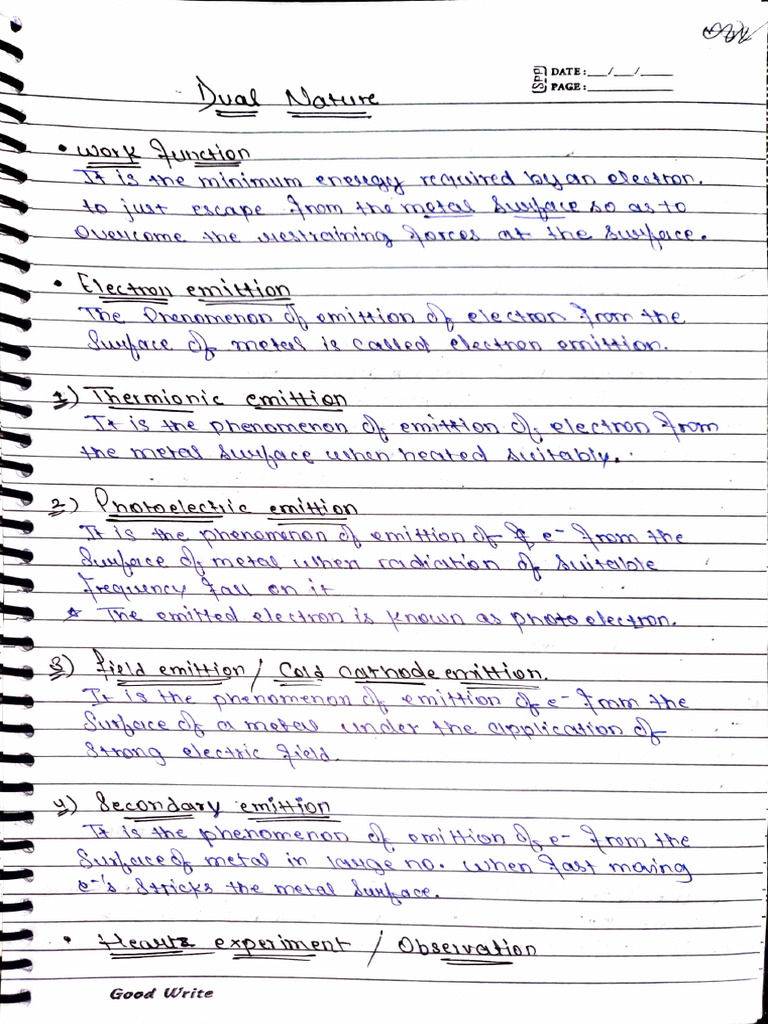 DATE: __/__/____
PAGE: ________
Dual Nature
• Work function
It is the minimum energy required by an electron.
to just escape from the metal surface so as to
overcome the restraining forces at the surface.
• Electron emittion
The Phenomenon of emittion of electron from the
surface of metal is called electron emittion.
1) Thermionic emittion
It is the phenomenon of emittion of electron from
the metal surface when heated suitably.
2) Photoelectric emittion
It is the phenomenon of emittion of e- from the
surface of metal when radiation of suitable
frequency fall on it
* The emitted electron is known as photo electron.
3) field emittion / Cold cathode emittion.
It is the phenomenon of emittion of e- from the
surface of a metal under the application of
strong electric field.
4) Secondary emittion
It is the phenomenon of emittion of e- from the
surface of metal in large no. when fast moving
e-'s sticks the metal surface.
• Heartz experiment / Observation
Good Write